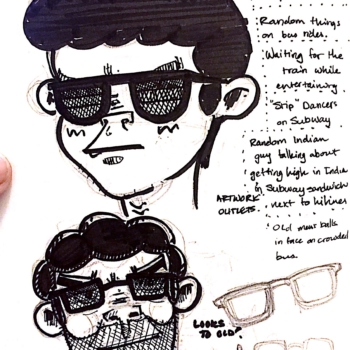 Random things
on bus rides.
Waiting for the
train while
entertaining
"Strip" Dancers
on Subway
Random Indian
guy talking about
getting high in India
&
Subway sandwich
next to
ARTWORK
OUTLETS.
Old mens balls
in face on crowded
bus.
LOOKS
TO OLD?